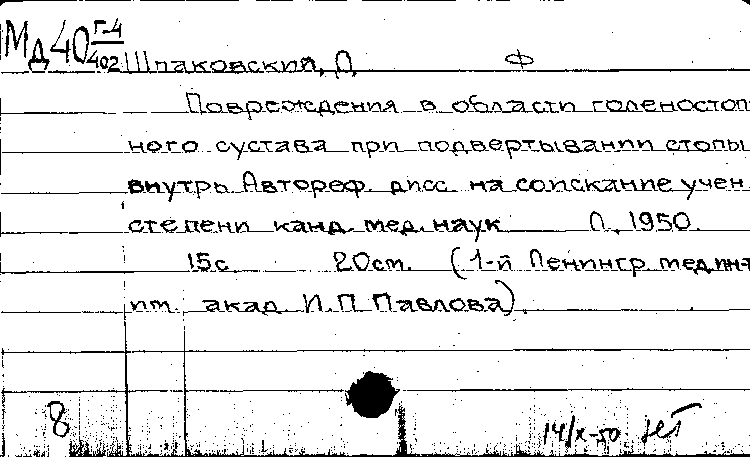 Мд 40 Г-4/402 Шпаковский, Л. Ф
Повреждения в области голеностоп
ного сустава при подвертывании стопы
внутрь. Автореф. дисс. на соискание учен
степени канд. мед. наук Л., 1950.
15с. 20см. (1-й Ленингр. мед. ин-т
им. акад. И.П. Павлова).
8
14/X-50